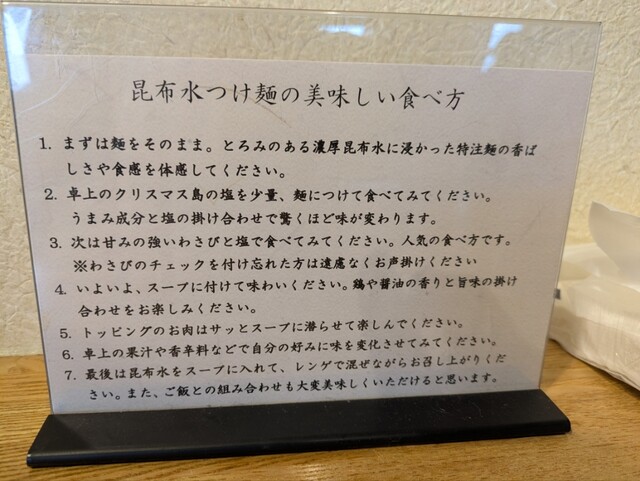 昆布水つけ麺の美味しい食べ方
1. まずは麺をそのまま。とろみのある濃厚昆布水に浸かった特注麺の香ば
しさや食感を体感してください。
2. 卓上のクリスマス島の塩を少量、麺につけて食べてみてください。
うまみ成分と塩の掛け合わせで驚くほど味が変わります。
3. 次は甘みの強いわさびと塩で食べてみてください。人気の食べ方です。
※わさびのチェックを付け忘れた方は遠慮なくお声掛けください
4. いよいよ、スープに付けて味わいください。鶏や醤油の香りと旨味の掛け
合わせをお楽しみください。
5. トッピングのお肉はサッとスープに潜らせて楽しんでください。
6. 卓上の果汁や香辛料などで自分の好みに味を変化させてみてください。
7. 最後は昆布水をスープに入れて、レンゲで混ぜながらお召し上がりくだ
さい。また、ご飯との組み合わせも大変美味しくいただけると思います。